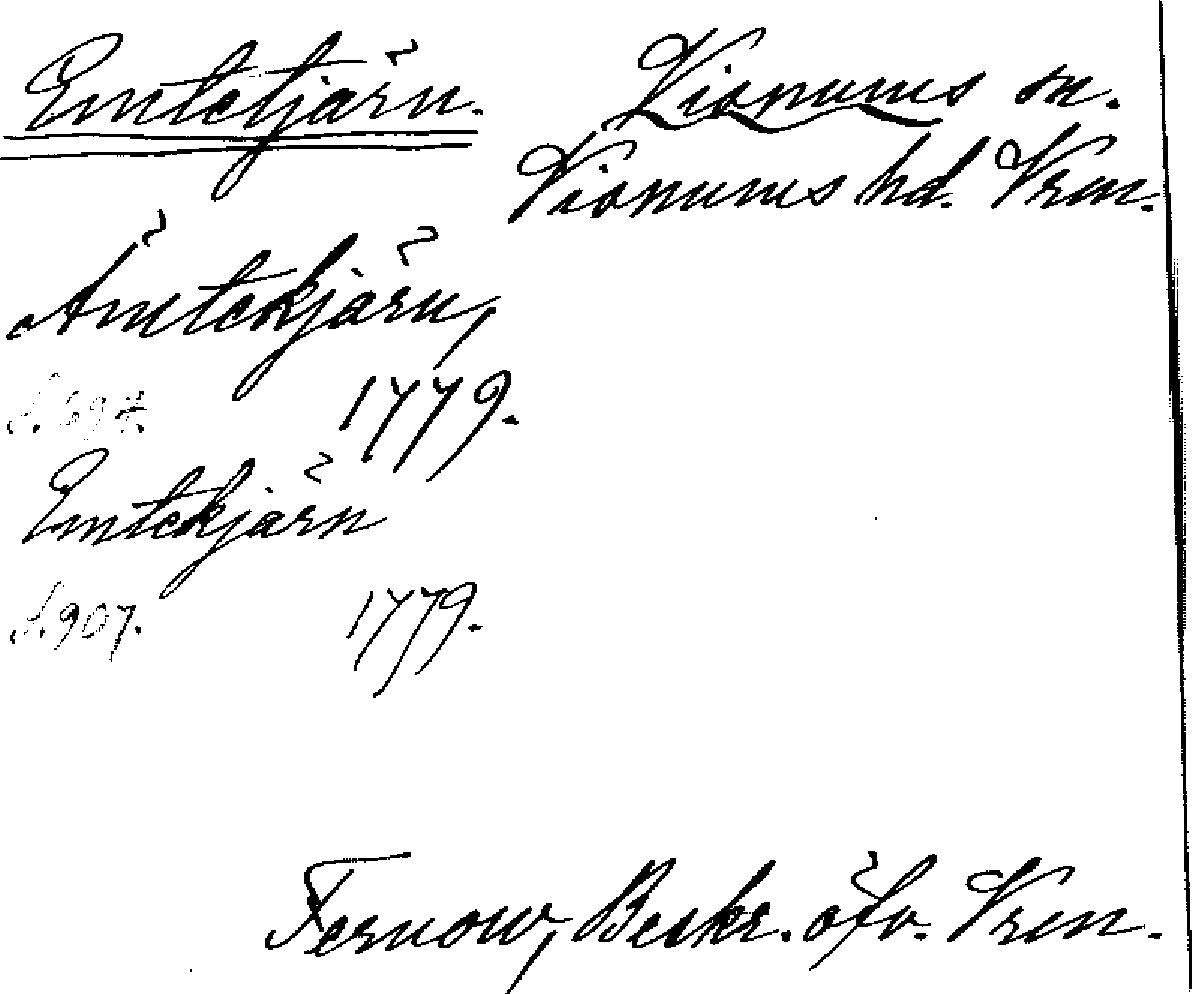 Emtetjärn. Visnums sn.
Visnums hd. Vrm.
Ämtekjärn,
S. 694. 1779.
Emtekjärn
S. 907. 1779.
Fernow, Beskr. öfv. Vrm.